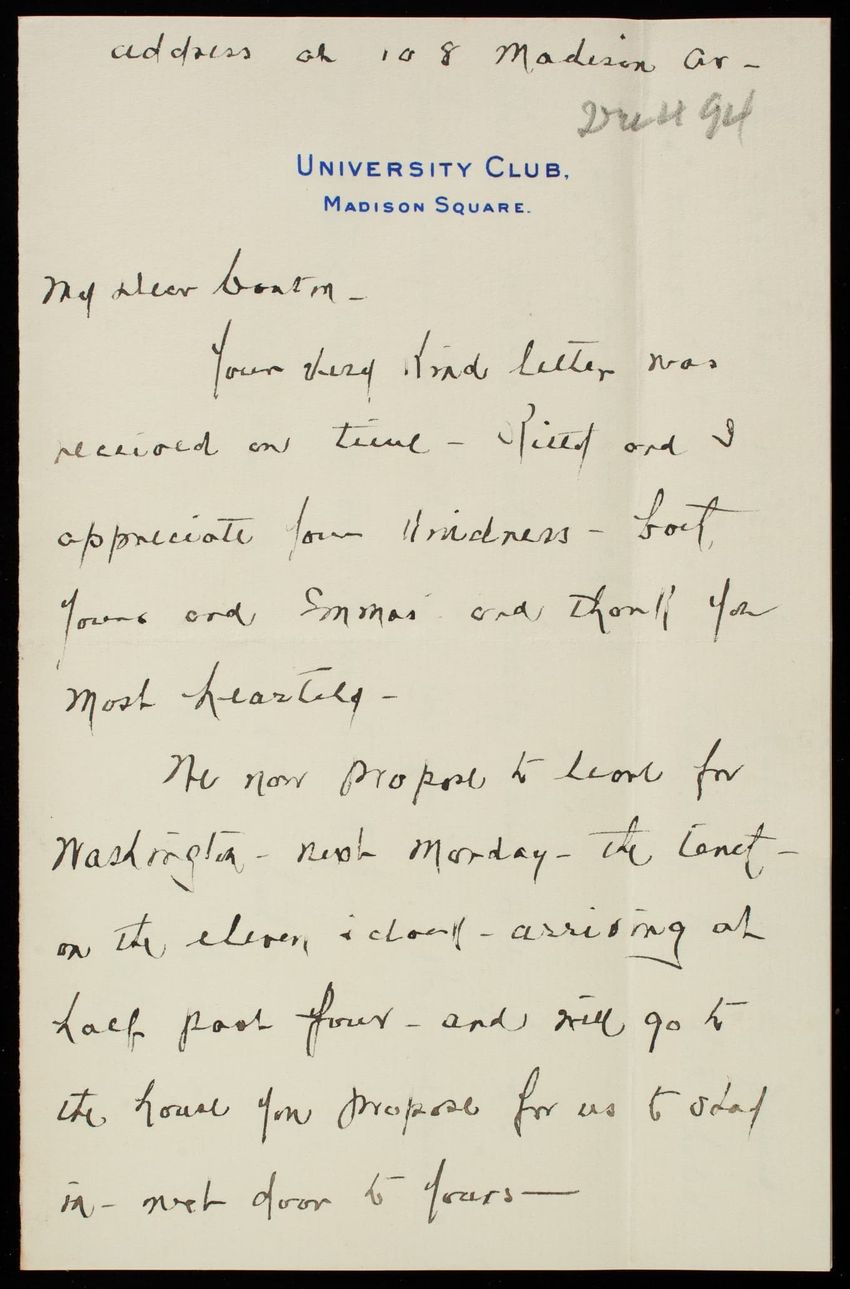 address at 108 Madison Av -
Dec 4 94
UNIVERSITY CLUB,
MADISON SQUARE.
My dear Couton -
Your very kind letter was
received on time - Kitty and I
appreciate your kindness - both
yours and Emmas and thank you
most heartily -
We now propose to leave for
Washington - next Monday - the tenth -
on the eleven oclock - arriving at
half past four - and will go to
the house you propose for us to stay
in - next door to yours —